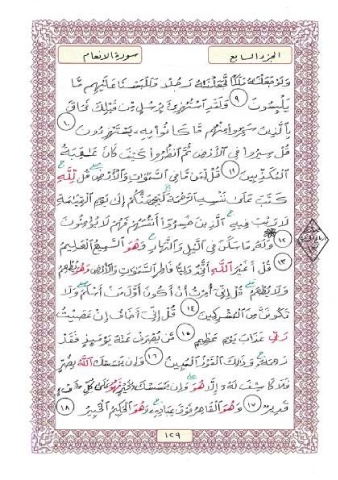 الجزء السابع سورة الانعام
وَلَوْ جَعَلْنَٰهُ مَلَكًا لَّجَعَلْنَٰهُ رَجُلًا وَلَلَبَسْنَا عَلَيْهِم مَّا
يَلْبِسُونَ ٩ وَلَقَدِ ٱسْتُهْزِئَ بِرُسُلٍ مِّن قَبْلِكَ فَحَاقَ
بِٱلَّذِينَ سَخِرُوا۟ مِنْهُم مَّا كَانُوا۟ بِهِۦ يَسْتَهْزِءُونَ ١٠
قُلْ سِيرُوا۟ فِى ٱلْأَرْضِ ثُمَّ ٱنظُرُوا۟ كَيْفَ كَانَ عَٰقِبَةُ
ٱلْمُكَذِّبِينَ ١١ قُل لِّمَن مَّا فِى ٱلسَّمَٰوَٰتِ وَٱلْأَرْضِ قُل لِّلَّهِ
كَتَبَ عَلَىٰ نَفْسِهِ ٱلرَّحْمَةَ لَيَجْمَعَنَّكُمْ إِلَىٰ يَوْمِ ٱلْقِيَٰمَةِ
لَا رَيْبَ فِيهِ ٱلَّذِينَ خَسِرُوٓا۟ أَنفُسَهُمْ فَهُمْ لَا يُؤْمِنُونَ
١٢ وَلَهُۥ مَا سَكَنَ فِى ٱلَّيْلِ وَٱلنَّهَارِ وَهُوَ ٱلسَّمِيعُ ٱلْعَلِيمُ
١٣ قُلْ أَغَيْرَ ٱللَّهِ أَتَّخِذُ وَلِيًّا فَاطِرِ ٱلسَّمَٰوَٰتِ وَٱلْأَرْضِ وَهُوَ يُطْعِمُ
وَلَا يُطْعَمُ قُلْ إِنِّىٓ أُمِرْتُ أَنْ أَكُونَ أَوَّلَ مَنْ أَسْلَمَ وَلَا
تَكُونَنَّ مِنَ ٱلْمُشْرِكِينَ ١٤ قُلْ إِنِّىٓ أَخَافُ إِنْ عَصَيْتُ
رَبِّى عَذَابَ يَوْمٍ عَظِيمٍ ١٥ مَّن يُصْرَفْ عَنْهُ يَوْمَئِذٍ فَقَدْ
رَحِمَهُۥ وَذَٰلِكَ ٱلْفَوْزُ ٱلْمُبِينُ ١٦ وَإِن يَمْسَسْكَ ٱللَّهُ بِضُرٍّ
فَلَا كَاشِفَ لَهُۥٓ إِلَّا هُوَ وَإِن يَمْسَسْكَ بِخَيْرٍ فَهُوَ عَلَىٰ كُلِّ شَىْءٍ
قَدِيرٌ ١٧ وَهُوَ ٱلْقَاهِرُ فَوْقَ عِبَادِهِۦ وَهُوَ ٱلْحَكِيمُ ٱلْخَبِيرُ ١٨
١٢٩